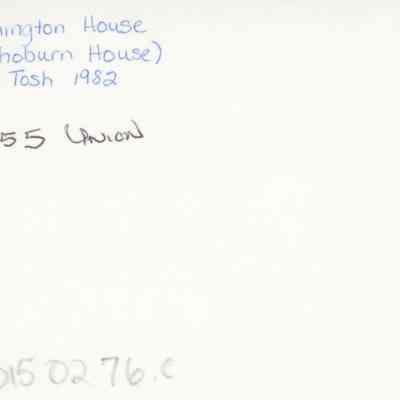 ington House
hoburn House)
Tosh 1982
55 Union
0150276.c